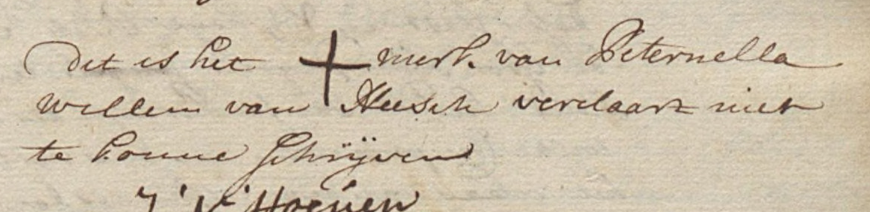 Dit is het + merk van Peternella
Willem van Heesch verclaart niet
te konne schrijven